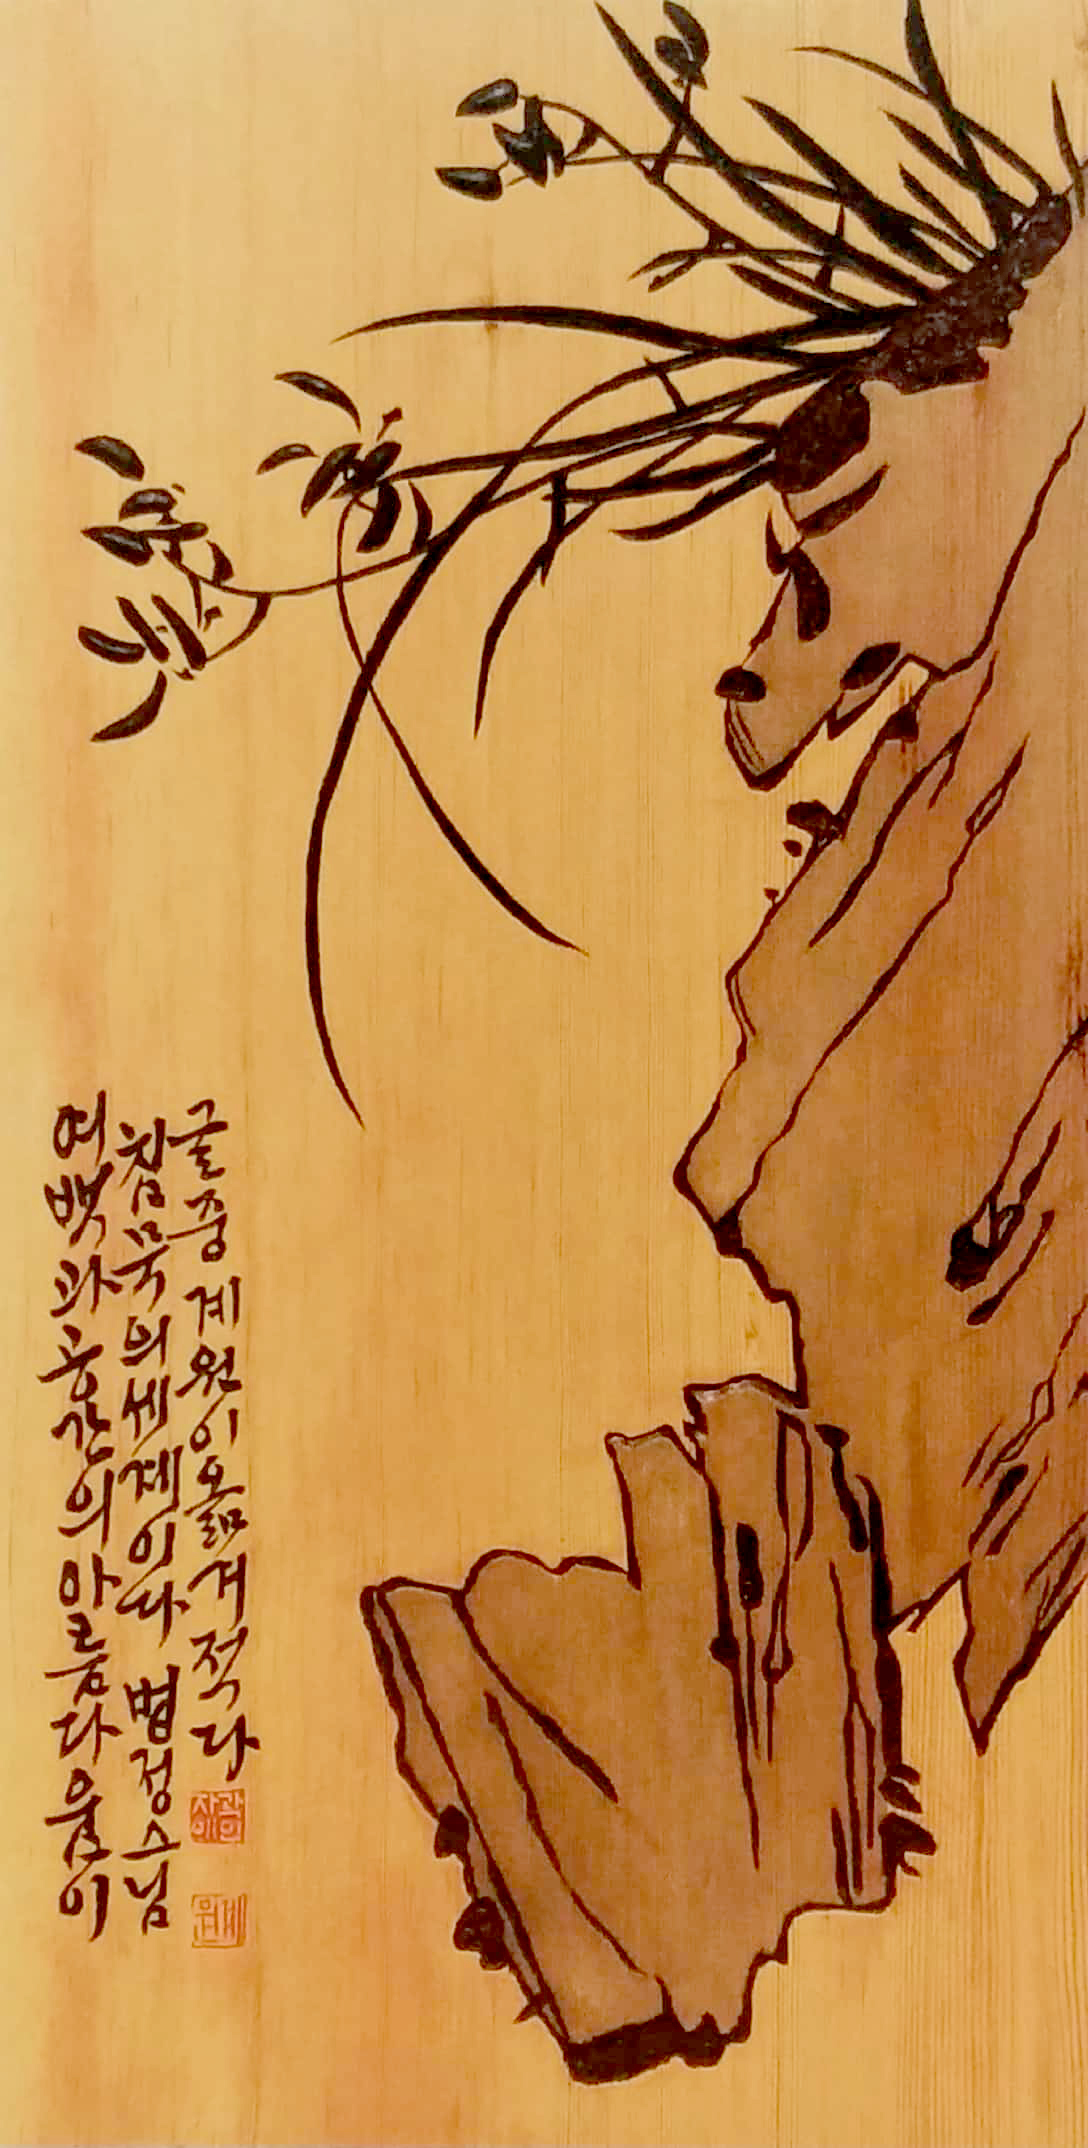 여백과 공간의 아름다움이
침묵의 세계이다 법정스님
글중 계원이 옮겨 적다
계원